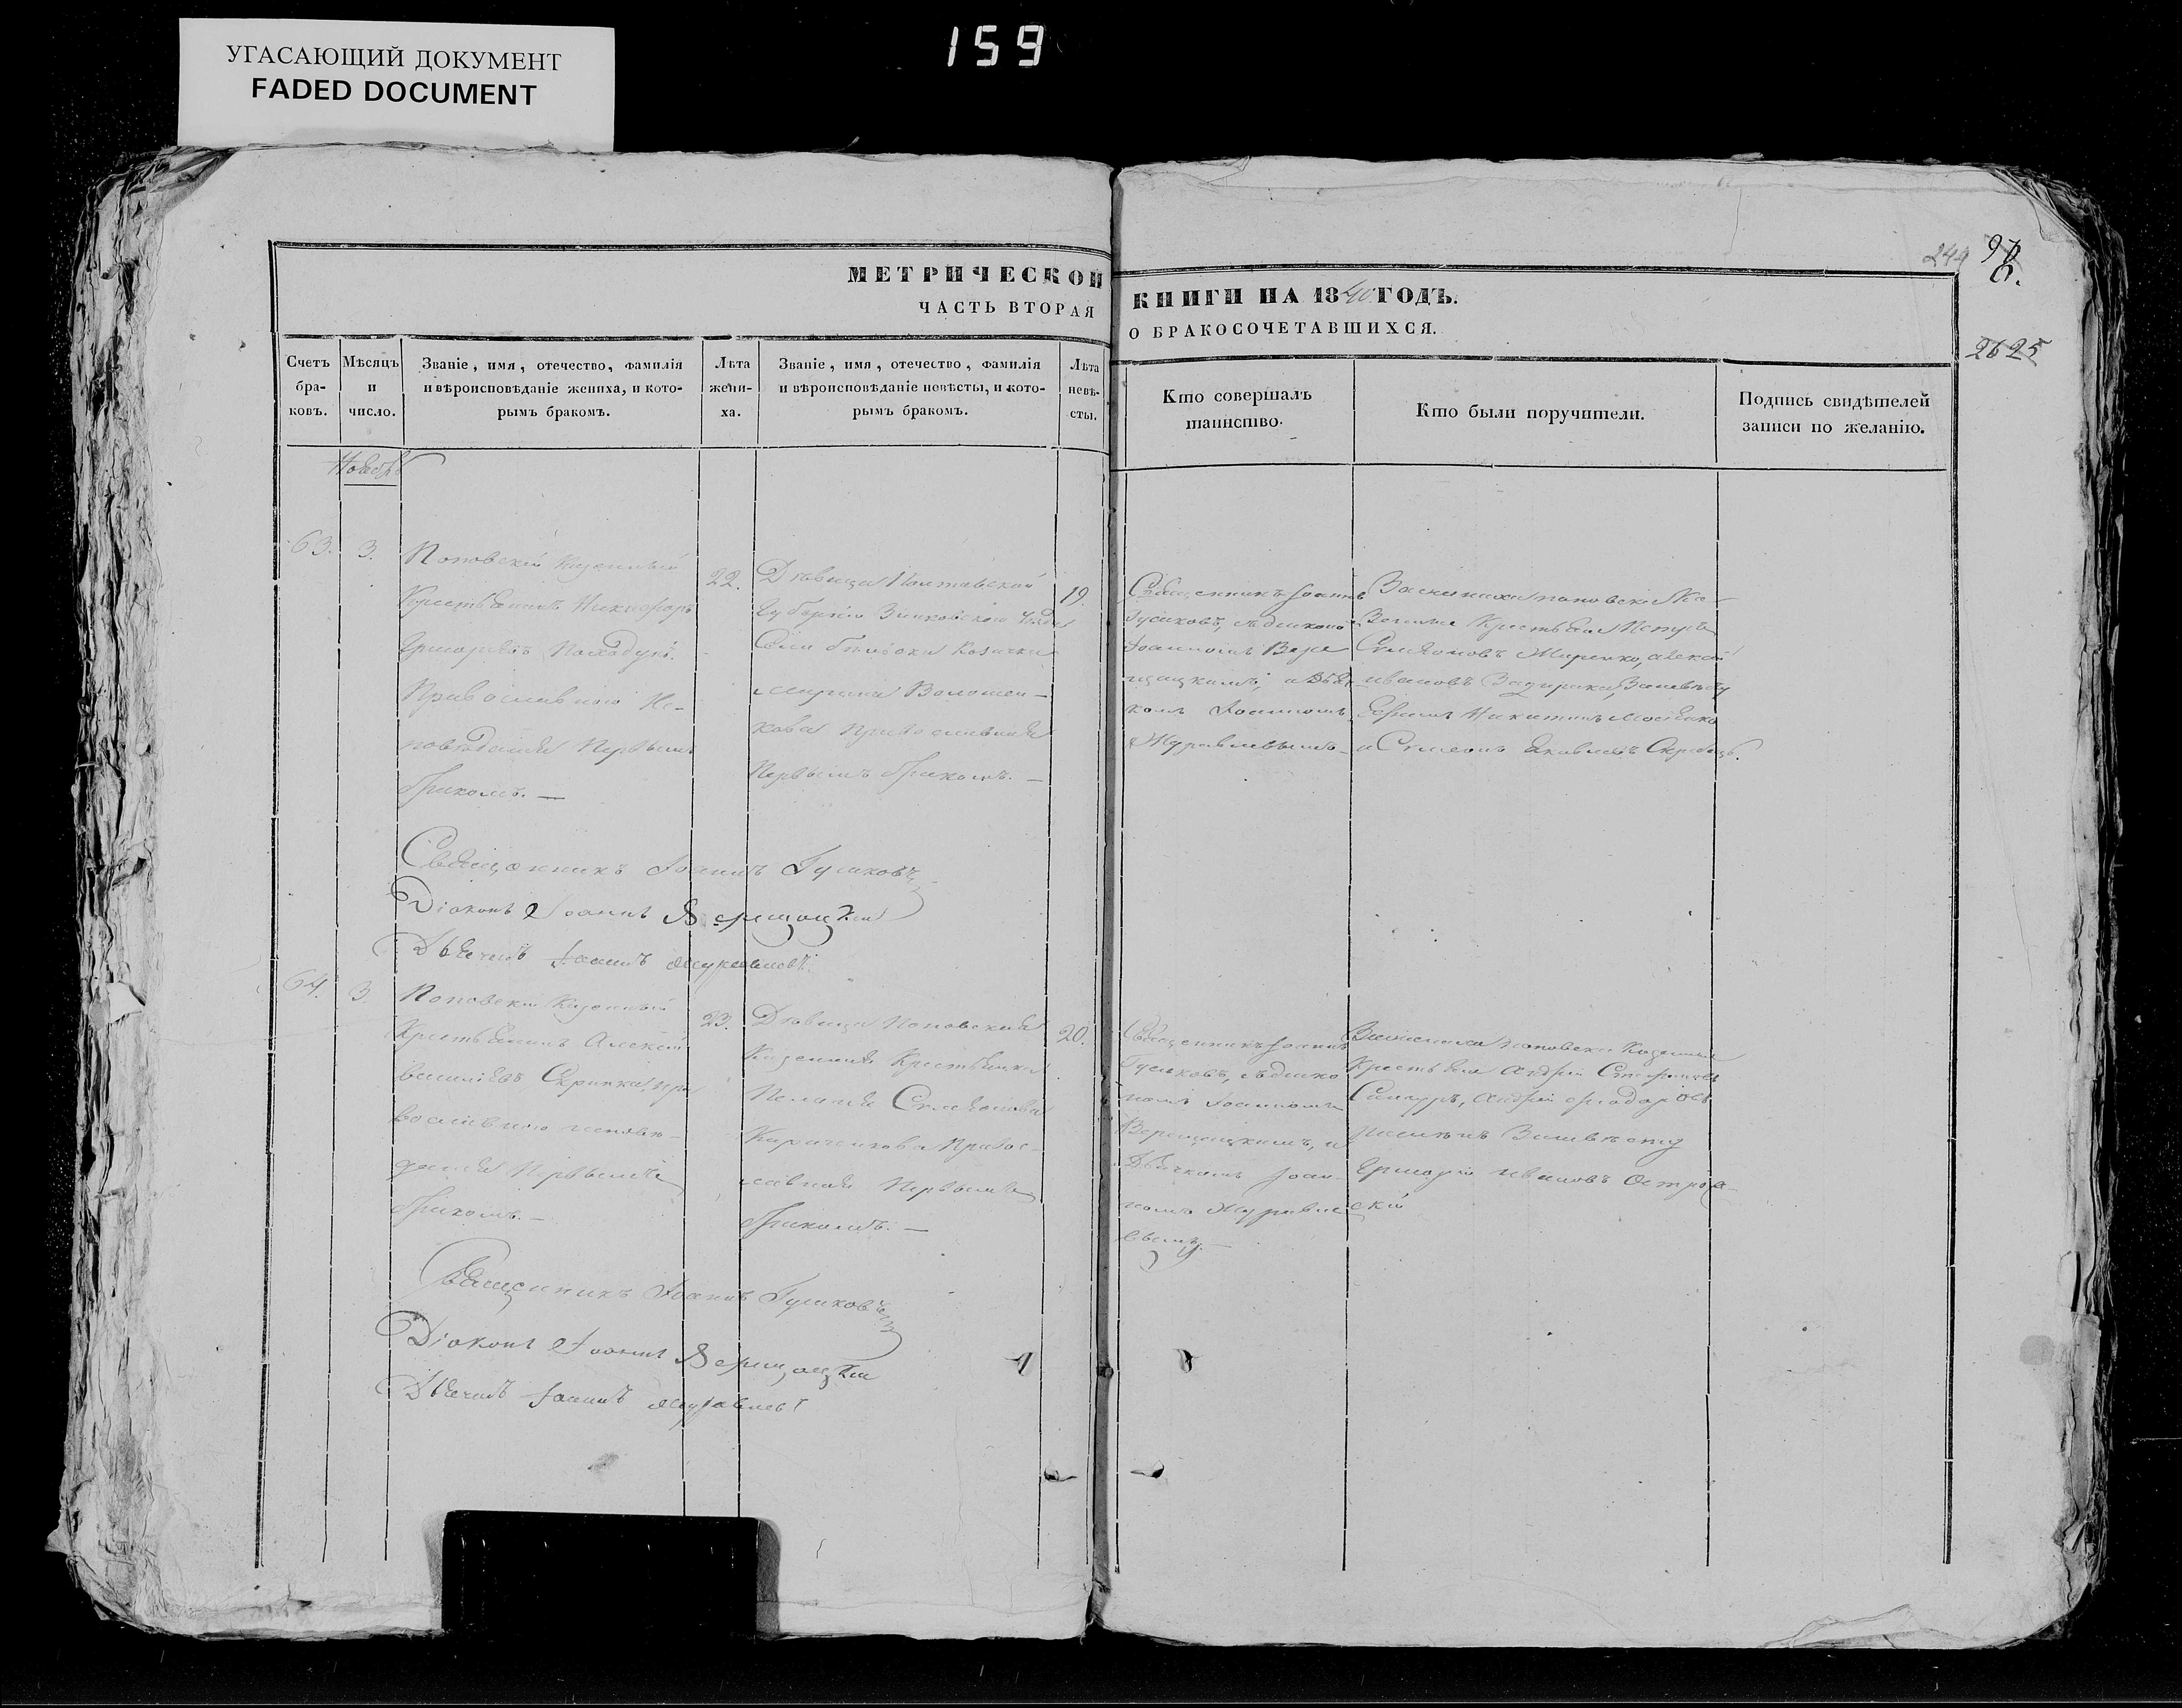 159
УГАСАЮЩИЙ ДОКУМЕНТ
FADED DOCUMENT
244
МЕТРИЧЕСКОЙ
ЧАСТЬ ВТОРАЯ
КНИГИ НА 1840 ГОДЪ.
О БРАКОСОЧЕТАВШИХСЯ.
2625
Счетъ
бра-
ковъ.
Мѣсяцъ
и
число.
Званіе, имя, отечество, фамилія
и вѣроисповѣданіе жениха, и кото-
рымъ бракомъ.
Лѣта
жени-
ха.
Званіе, имя, отечество, фамилія
и вѣроисповѣданіе невѣсты, и кото-
рымъ бракомъ.
Лѣта
невѣ-
сты.
Кто совершалъ
таинство.
Кто были поручители.
Подпись свидѣтелей
записи по желанію.
Ноябрь
63.
3.
Поповскій Казенный
Крестьянинъ Никифоръ
Григорьевъ
Православного Ис-
повѣданія Первымъ
бракомъ. —
22.
Дѣвица Полтавской
Губерніи Зинковскаго Уѣзда
Козачка
Волошен-
кова Православная
Первымъ бракомъ. —
19.
Священникъ Іоаннъ
Гусаковъ, съ діакономъ
Іоанномъ Вере
щацкимъ, и Дьяч
комъ Іоанномъ
Журавлевымъ —
За жениха поповскія Ка-
зенные Крестьяне Петръ
Семеновъ Алексѣй
Ивановъ За невѣсту
Никитинъ
и Семенъ Яковлевъ
Священникъ Іоаннъ Гусаковъ
Діаконъ Іоаннъ Верещацкій
Дьячекъ Іоаннъ Журавлевъ
64.
3.
Поповскій Казенный
Крестьянинъ Алексѣй
Васильевъ Скрипка, пра
вославного исповѣ-
данія Первымъ
бракомъ. —
23.
Дѣвица Поповская
Казенная Крестьянка
Пелагія Семенова
Кириченкова Правос-
лавная Первымъ
бракомъ. —
20.
Священникъ Іоаннъ
Гусаковъ, съ діако
номъ Іоанномъ
Верещацкимъ, и
Дьячкомъ Іоан-
номъ Журавле
вымъ. —
За жениха поповскія Казенные
Крестьяне Андрей
Андрей Федоровъ
За невѣсту
Григорій Ивановъ Остров-
скій
Священникъ Іоаннъ Гусаковъ
Діаконъ Іоаннъ Верещацкій
Дьячекъ Іоаннъ Журавлевъ